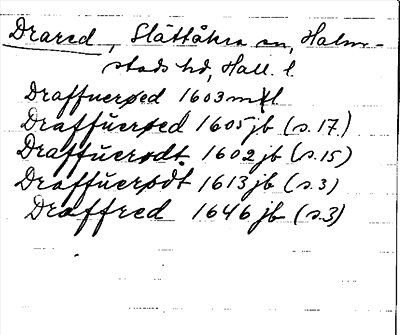 Drared, Slättåkra sn, Halm-
stads hd, Hall. l.
Draffuerøed 1603 mtl
Draffŭerøed 1605 jb (s. 17.)
Draffŭerødt 1602 jb (s. 15)
Draffŭerødt 1613 jb (s. 3)
Draffred 1646 jb (s. 3)